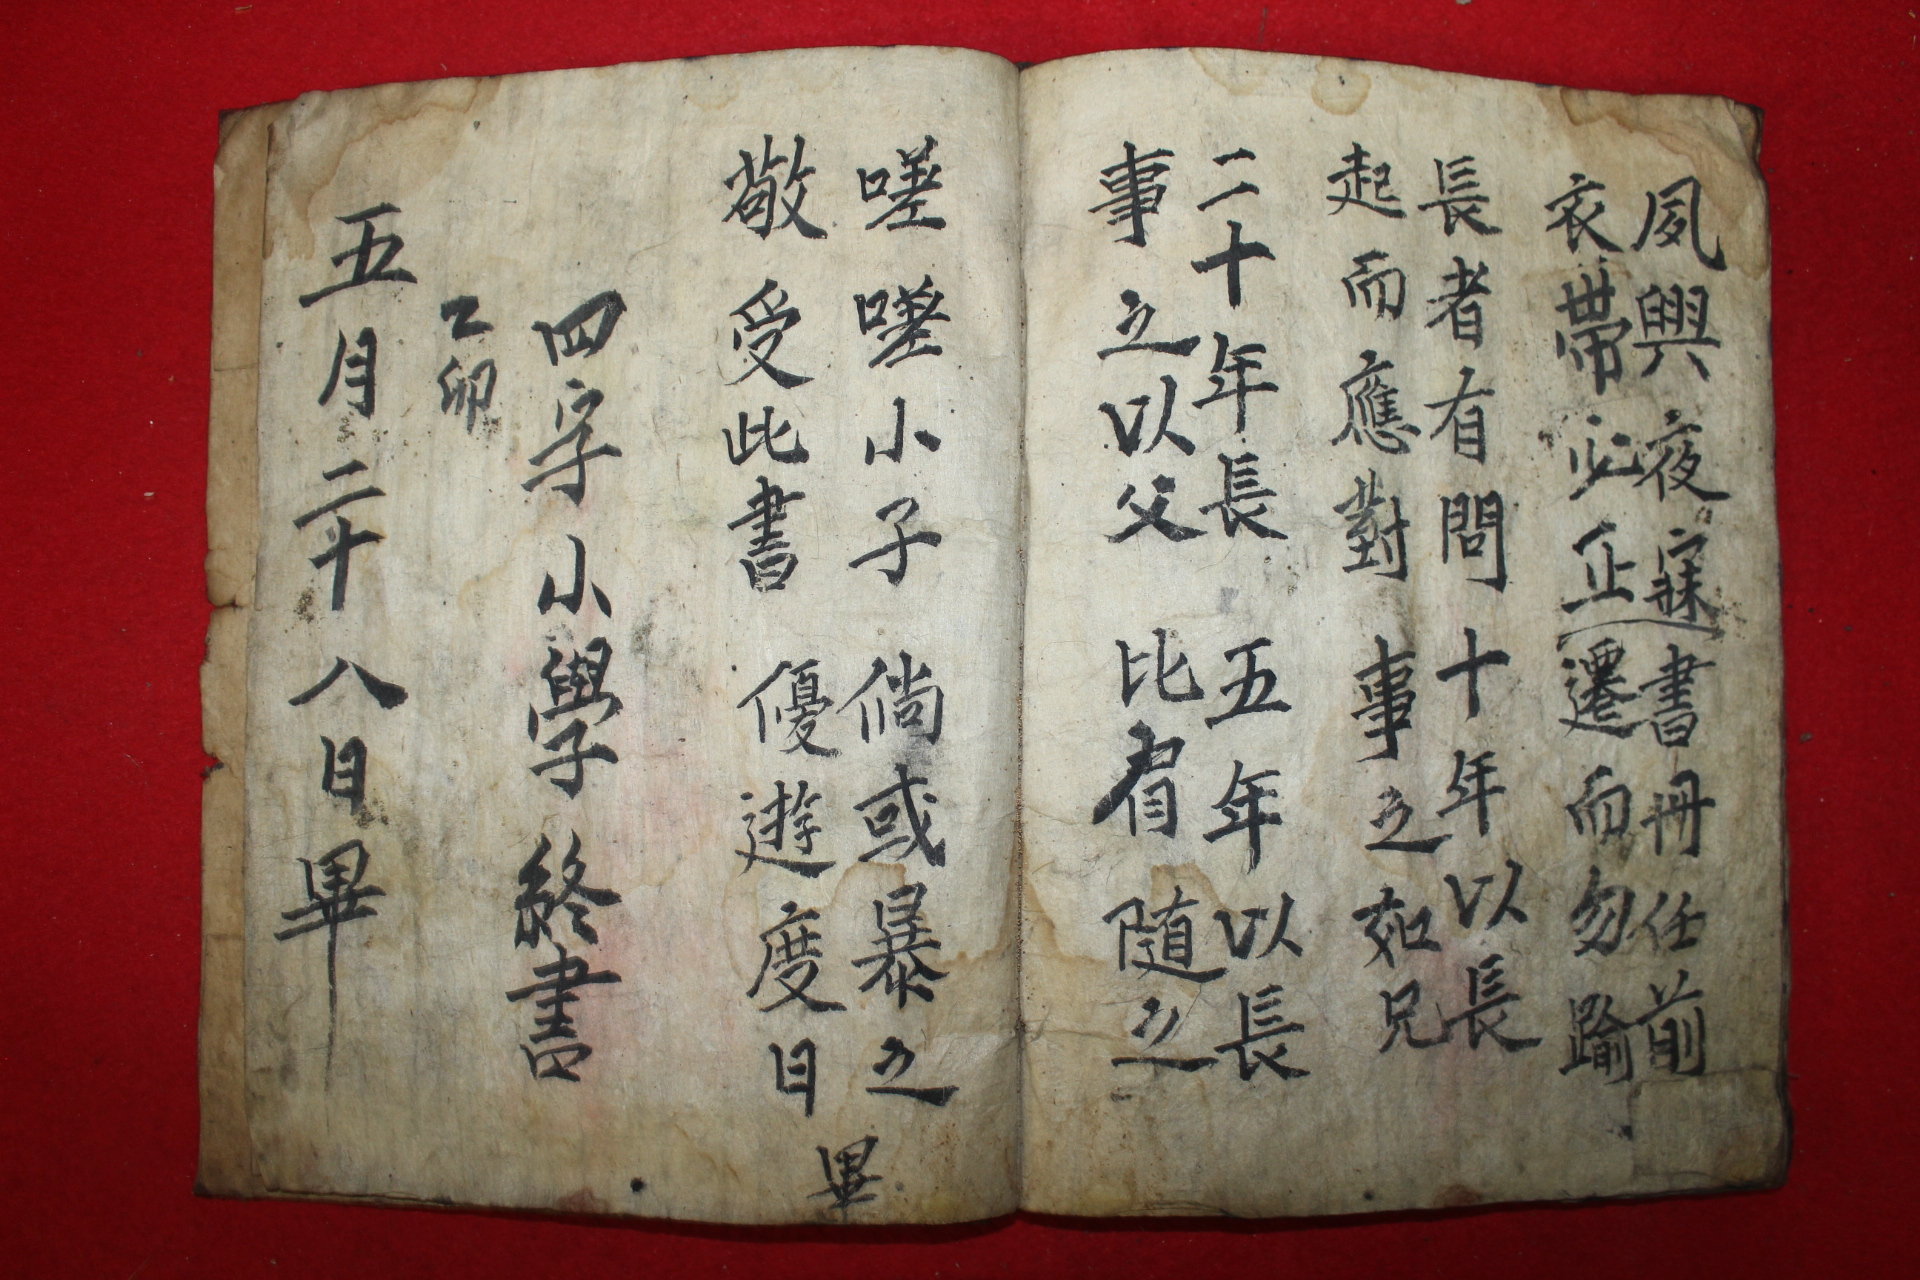 夙興夜寐書冊任前
衣帶必正遷而勿踰
長者有問十年以長
起而應對事之如兄
二十年長五年以長
事之以父比肩随之
嗟嗟小子倘或暴之
敬受此書優遊度日
畢
四字小學終書
乙卯
五月二十八日畢